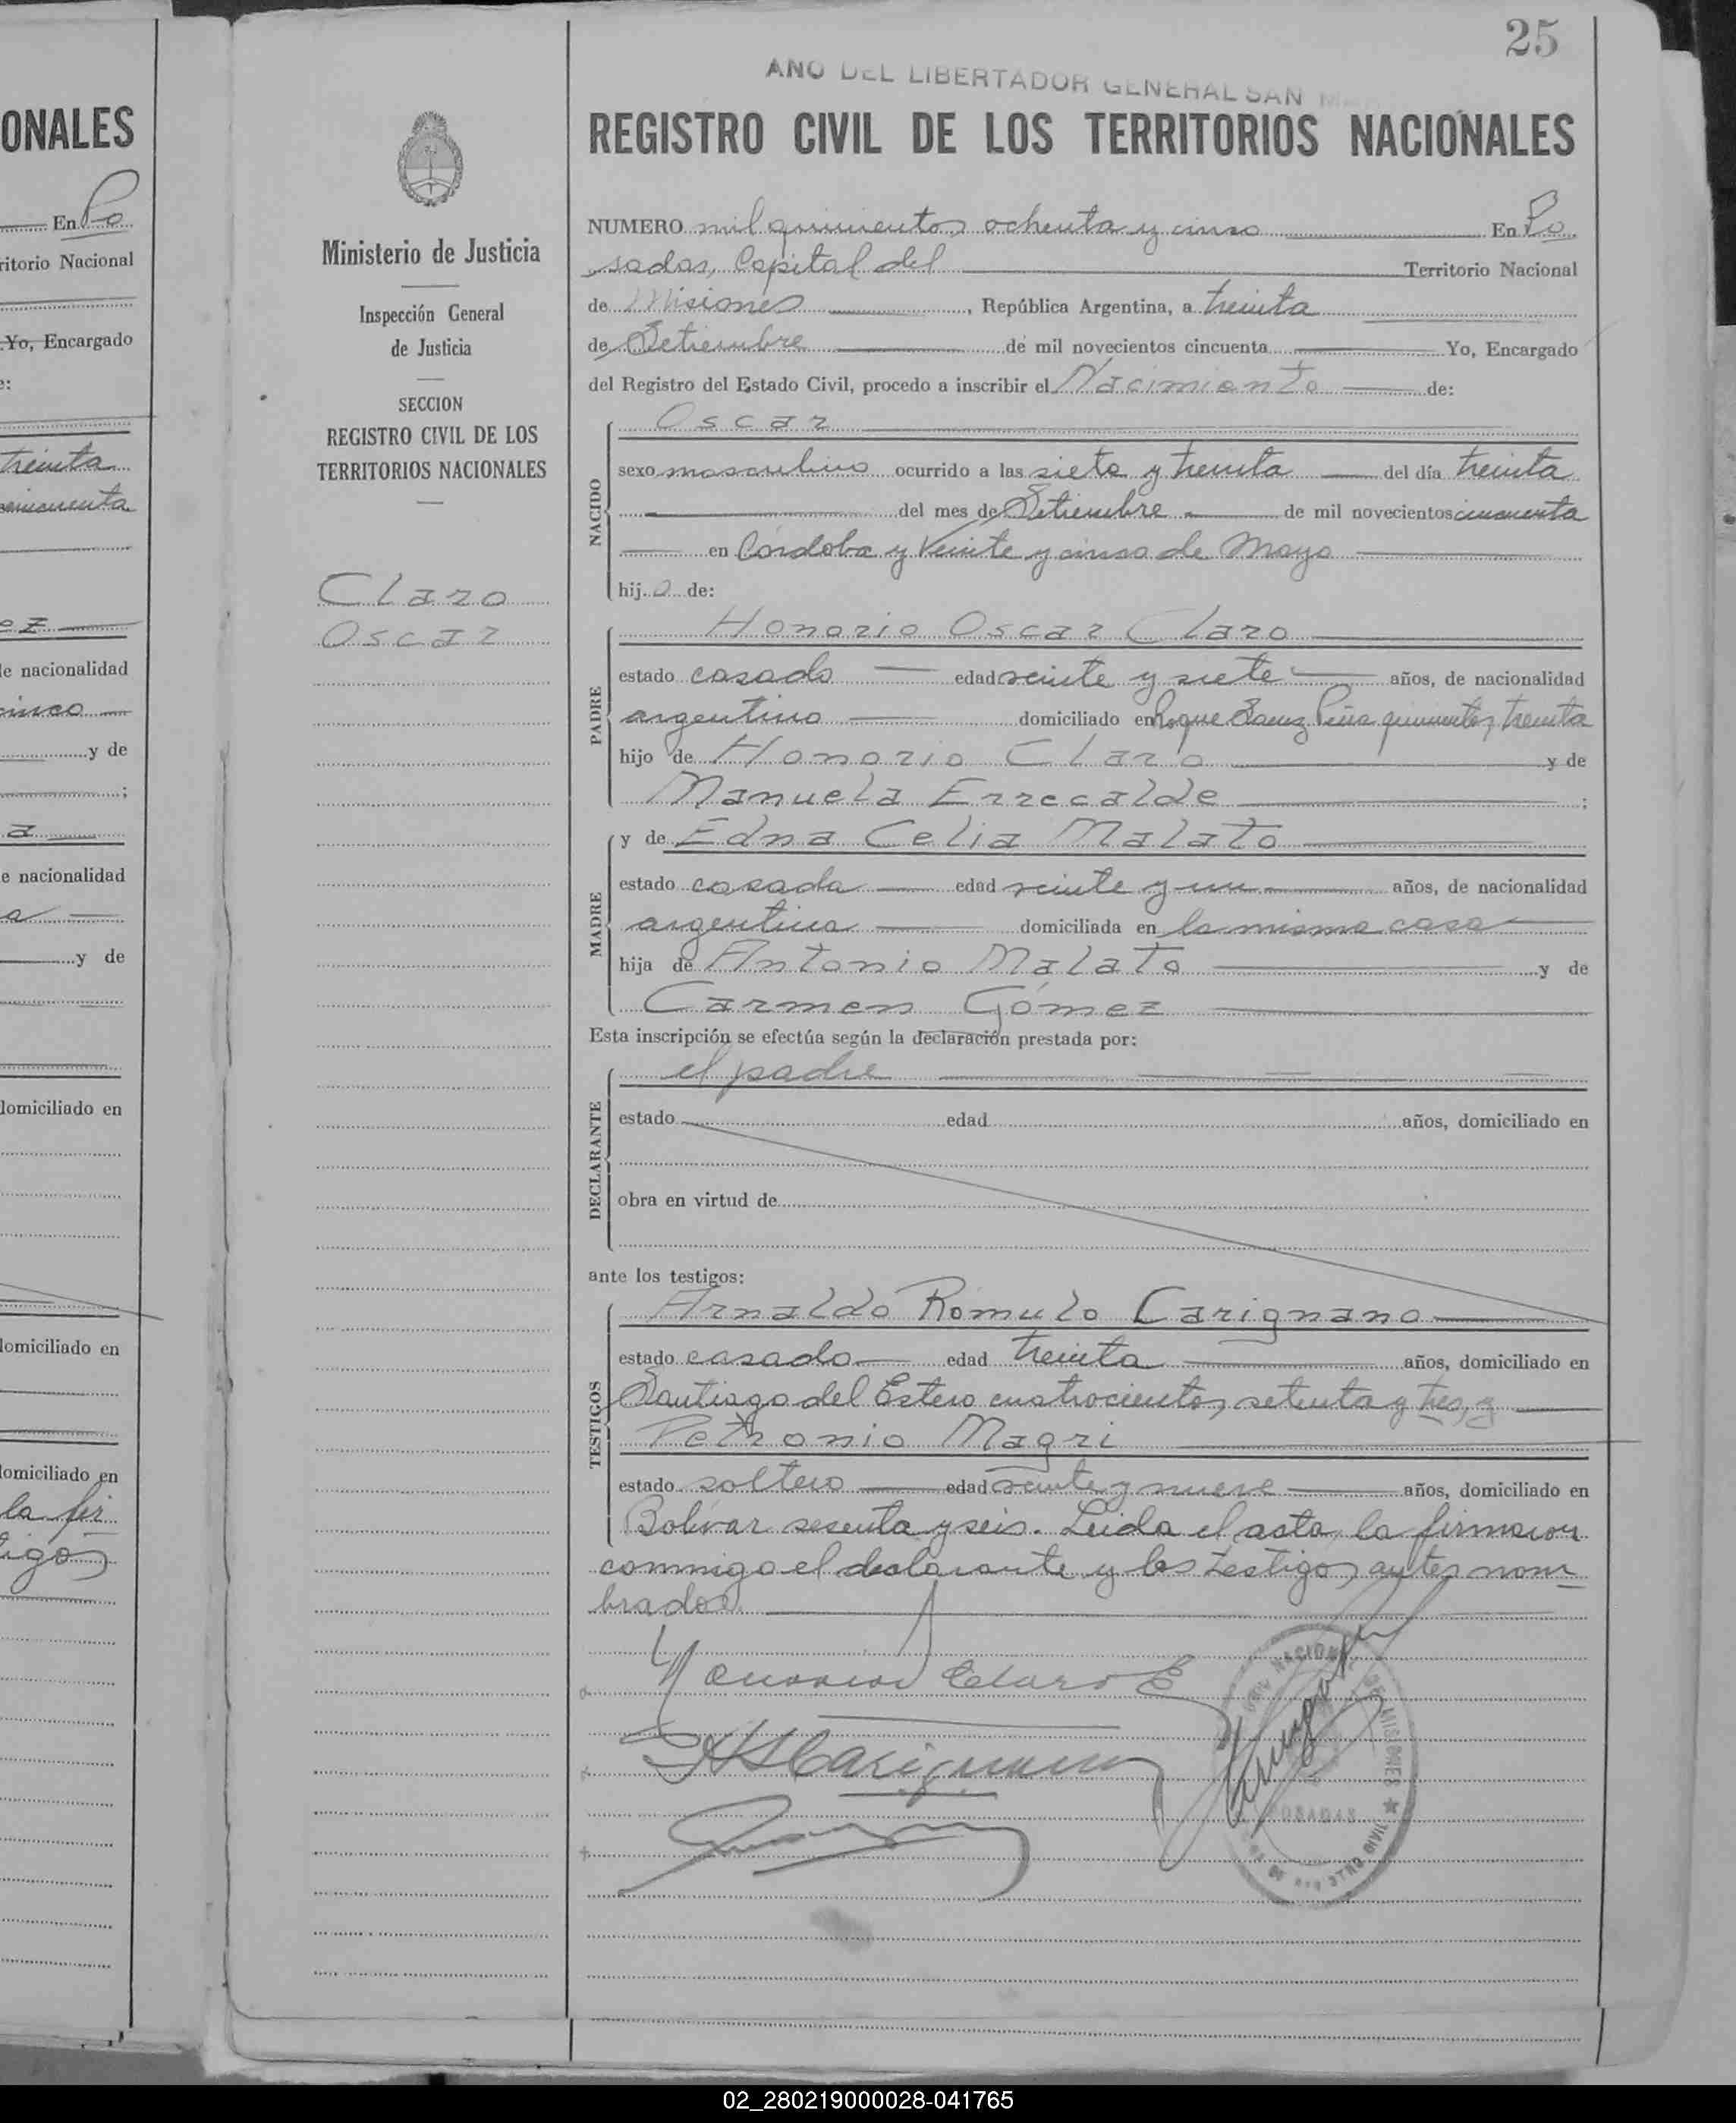 ONALES
En Po
ritorio Nacional
Yo, Encargado
e:
treinta
cincuenta
ez
de nacionalidad
cinco
y de
;
a
e nacionalidad
a
y de
domiciliado en
domiciliado en
domiciliado en
la fir
tigos
25
AÑO DEL LIBERTADOR GENERAL SAN
Ministerio de Justicia
Inspección General
de Justicia
SECCION
REGISTRO CIVIL DE LOS
TERRITORIOS NACIONALES
Claro
Oscar
REGISTRO CIVIL DE LOS TERRITORIOS NACIONALES
NUMERO mil quinientos ochenta y cinco En Po
sadas, Capital del Territorio Nacional
de Misiones, República Argentina, a treinta
de Setiembre de mil novecientos cincuenta Yo, Encargado
del Registro del Estado Civil, procedo a inscribir el Nacimiento de:
NACIDO
Oscar
sexo masculino ocurrido a las siete y treinta del día treinta
del mes de Setiembre de mil novecientos cincuenta
en Córdoba y Veinte y cinco de Mayo
hijo de:
PADRE
Honorio Oscar Claro
estado casado edad veinte y siete años, de nacionalidad
argentino domiciliado en Roque Saenz Peña quinientos treinta
hijo de Honorio Claro y de
Manuela Errecalde ;
MADRE
y de Edna Celia Malato
estado casada edad veinte y un años, de nacionalidad
argentina domiciliada en la misma casa
hija de Antonio Malato y de
Carmen Gómez
Esta inscripción se efectúa según la declaración prestada por:
DECLARANTE
el padre
estado edad años, domiciliado en
obra en virtud de
ante los testigos:
TESTIGOS
Arnaldo Romulo Carignano
estado casado edad treinta años, domiciliado en
Santiago del Estero cuatrocientos setenta y tres, y
Petronio Magri
estado soltero edad veinte y nueve años, domiciliado en
Bolívar sesenta y seis. Leida el acta, la firmaron
conmigo el declarante y los testigos antes nom
brados.
Honorio Claro E
Carignano
NACIONAL DE MISIONES
POSADAS
02_280219000028-041765